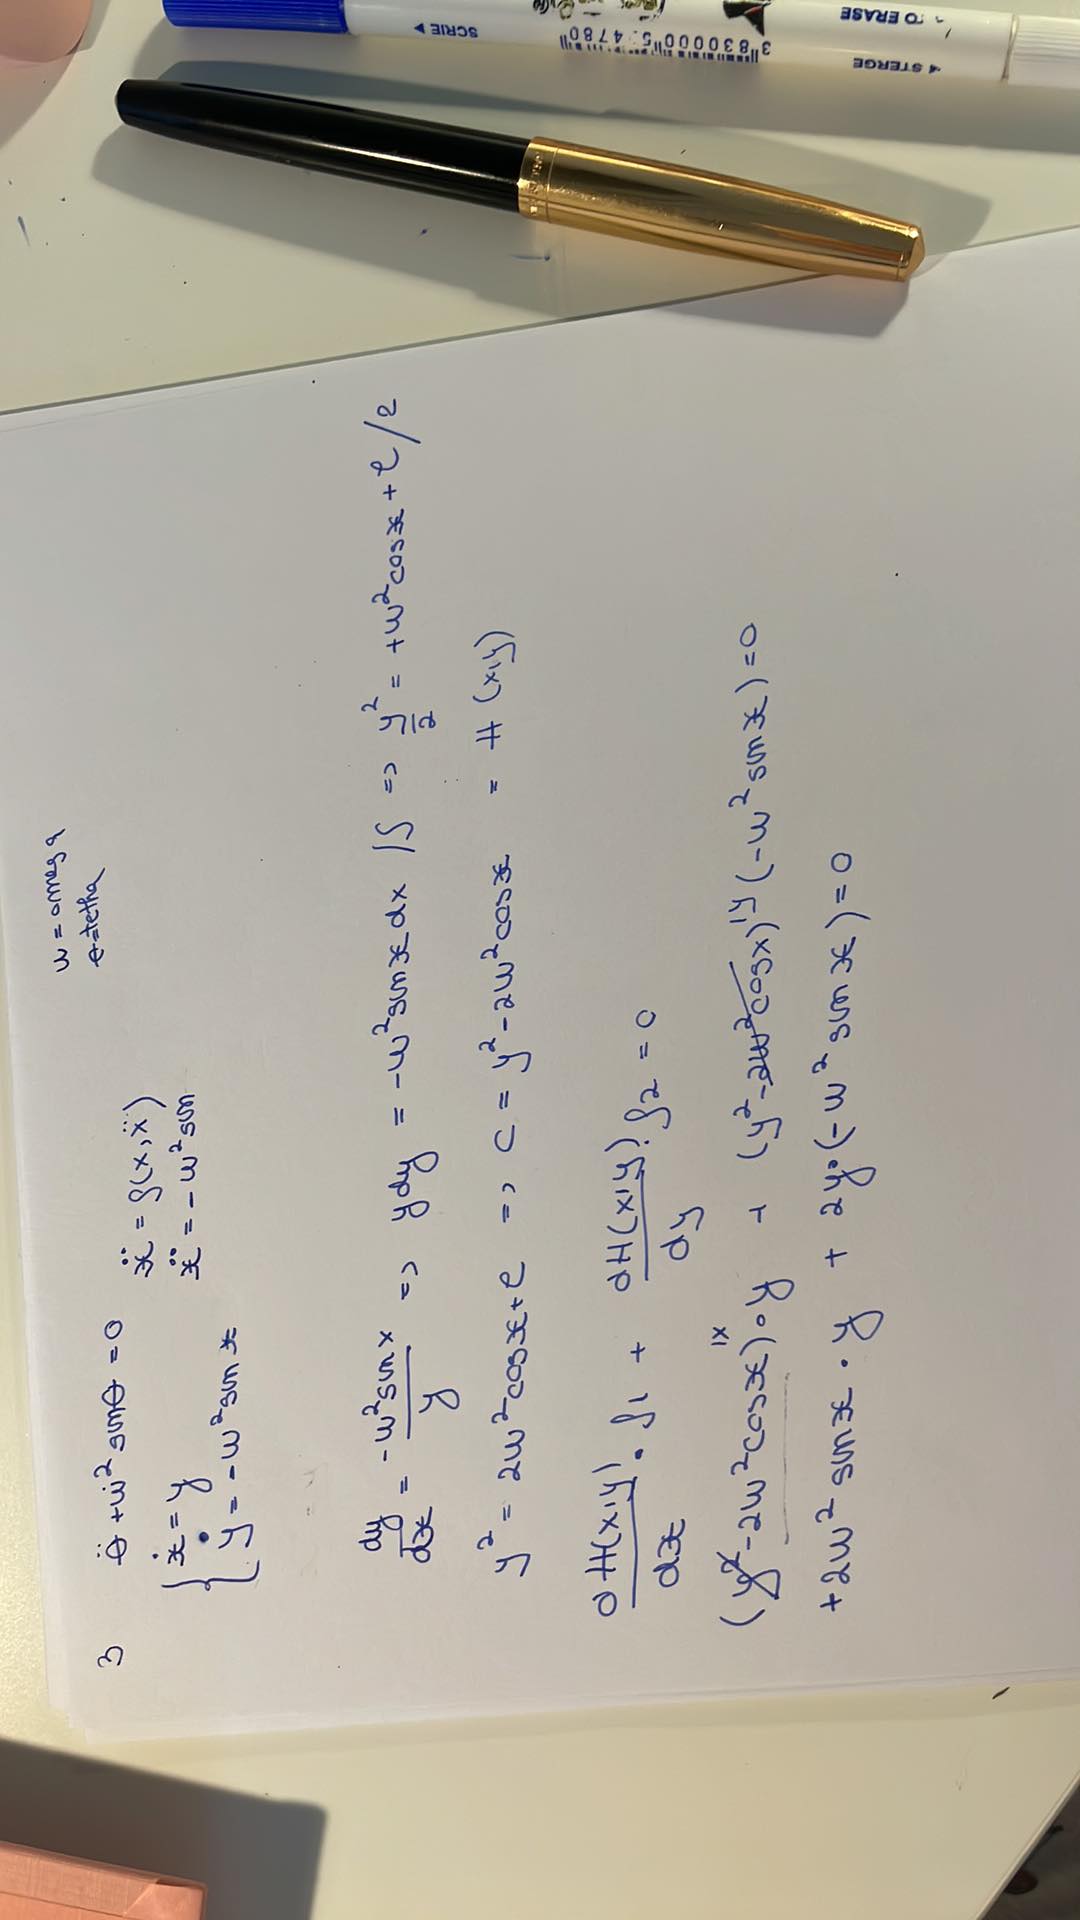 w = omega
ɵ=tetha
3 ɵ̈ + ẇ² sinɵ = 0
ẍ = f(x, ẍ)
{ ẋ = y
ẍ = - w² sin
ẏ = - w² sin x
dy/dx = -w² sin x / y => y dy = -w² sin x dx /∫ => y²/2 = +w² cos x + C /2
y² = 2w² cos x + C => C = y² - 2w² cos x = H (x,y)
dH(x,y)/dx · f1 + dH(x,y)/dy · f2 = 0
(y² - 2w² cos x)'x · y + (y² - 2w² cos x)'y (-w² sin x) = 0
+2w² sin x · y + 2y·(-w² sin x) = 0
SCRIE
STERGE
TO ERASE
3 830000 5 4780